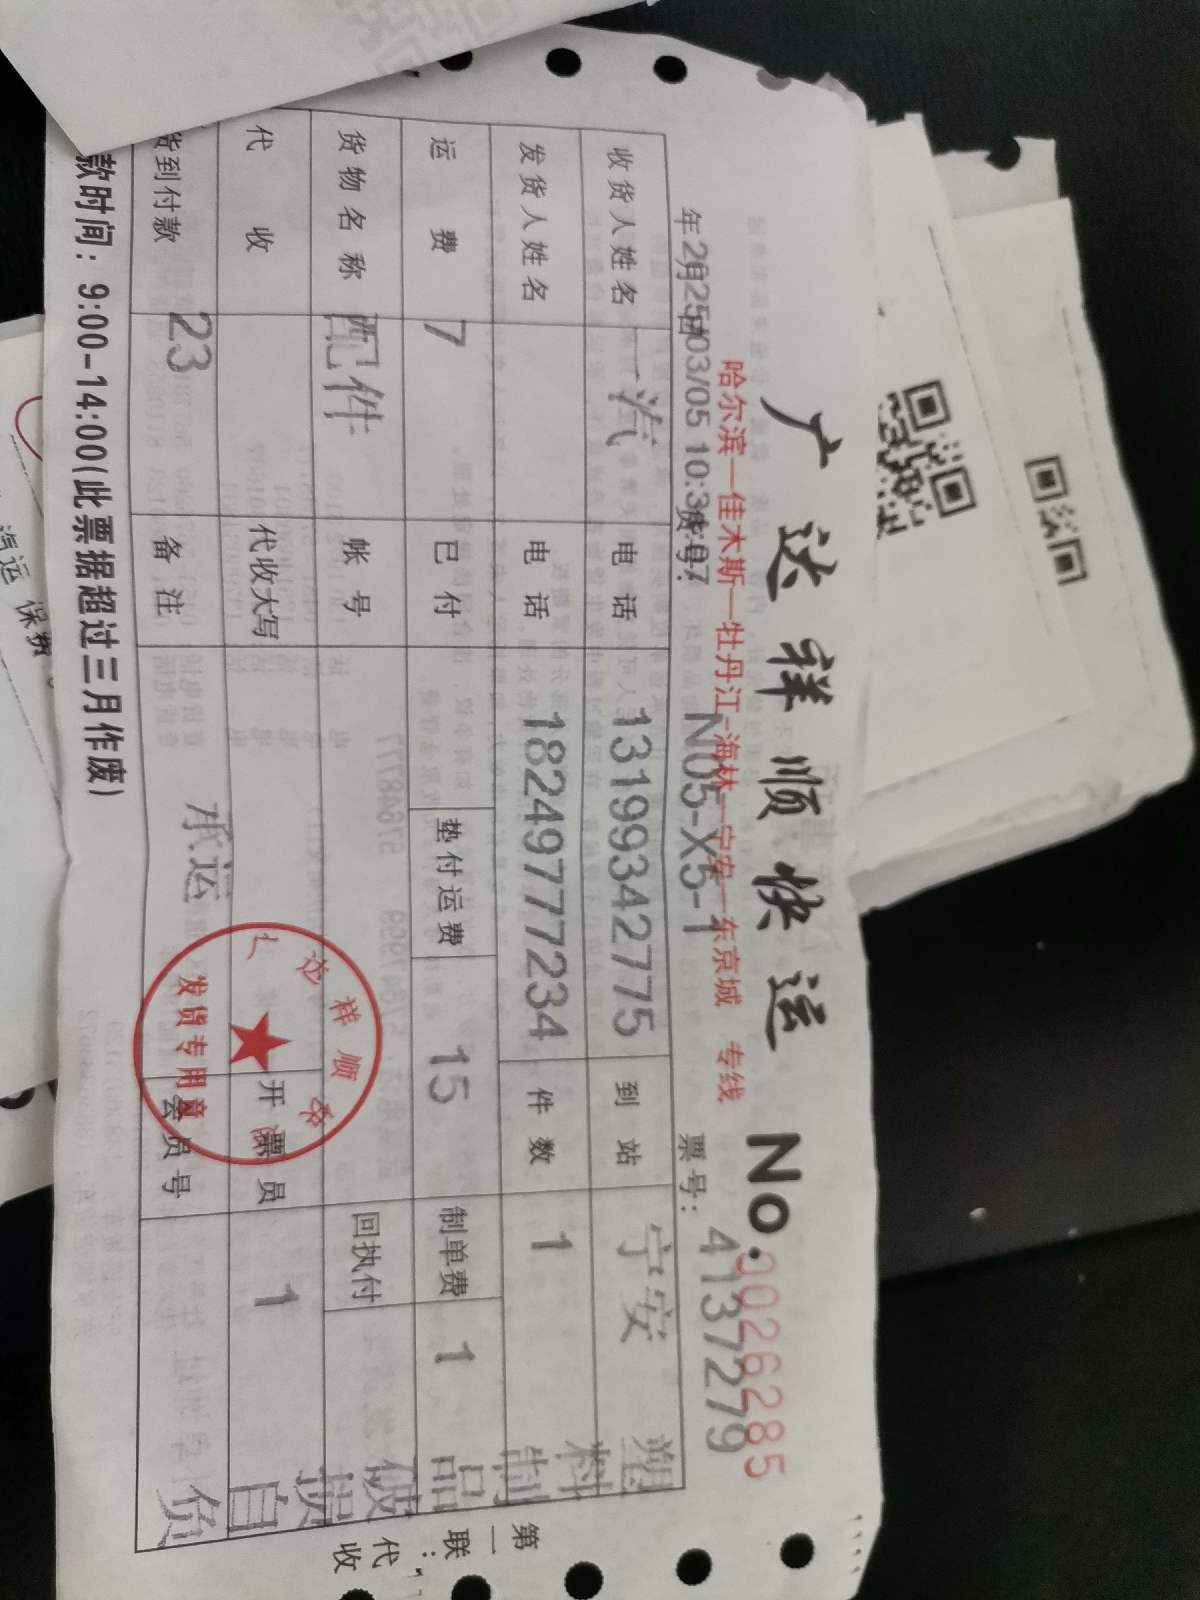 广达祥顺快运 No.0026285
哈尔滨—佳木斯—牡丹江—海林—宁安—东京城 专线
年 月 日 货号: 票号:
2025/03/05 10:36:07 N05-X5-1 4137279
收货人姓名 一汽 电话 13199342775 到站 宁安
发货人姓名 电话 18249777234 件数 1
运费 7 已付 垫付运费 15 制单费 1
货物名称 配件 帐号 回执付
代收 代收大写 开票员 1
货到付款 23 备注 承运 会员号
塑料制品破损自负
款时间：9:00-14:00(此票据超过三月作废)
第一联：代收
达祥顺
发货专用章
汽运 保费